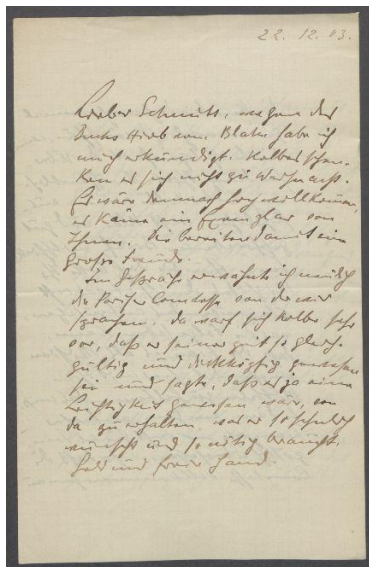 22. 12. 03.
Lieber Schmitt, wegen des
Buches Hiob von Blake habe ich
mich erkundigt. Kolbes schen-
ken es sich nicht zu Weihnacht.
Es wäre demnach hochwillkommen,
es käme ein Exemplar von
Ihnen. Sie bereiten damit eine
große Freude.
Im Gespräch erwähnte ich neulich
die Pariser Comtesse von der wir
sprachen, da warf sich Kolbe sehr
vor, daß er seiner Zeit so gleich-
gültig und dickköpfig gewesen
sei und sagte, daß es ja eine
Leichtigkeit gewesen wäre, von
da zu erhalten was er so sehnlich
wünscht und so nötig braucht.
Geld und freie Hand.